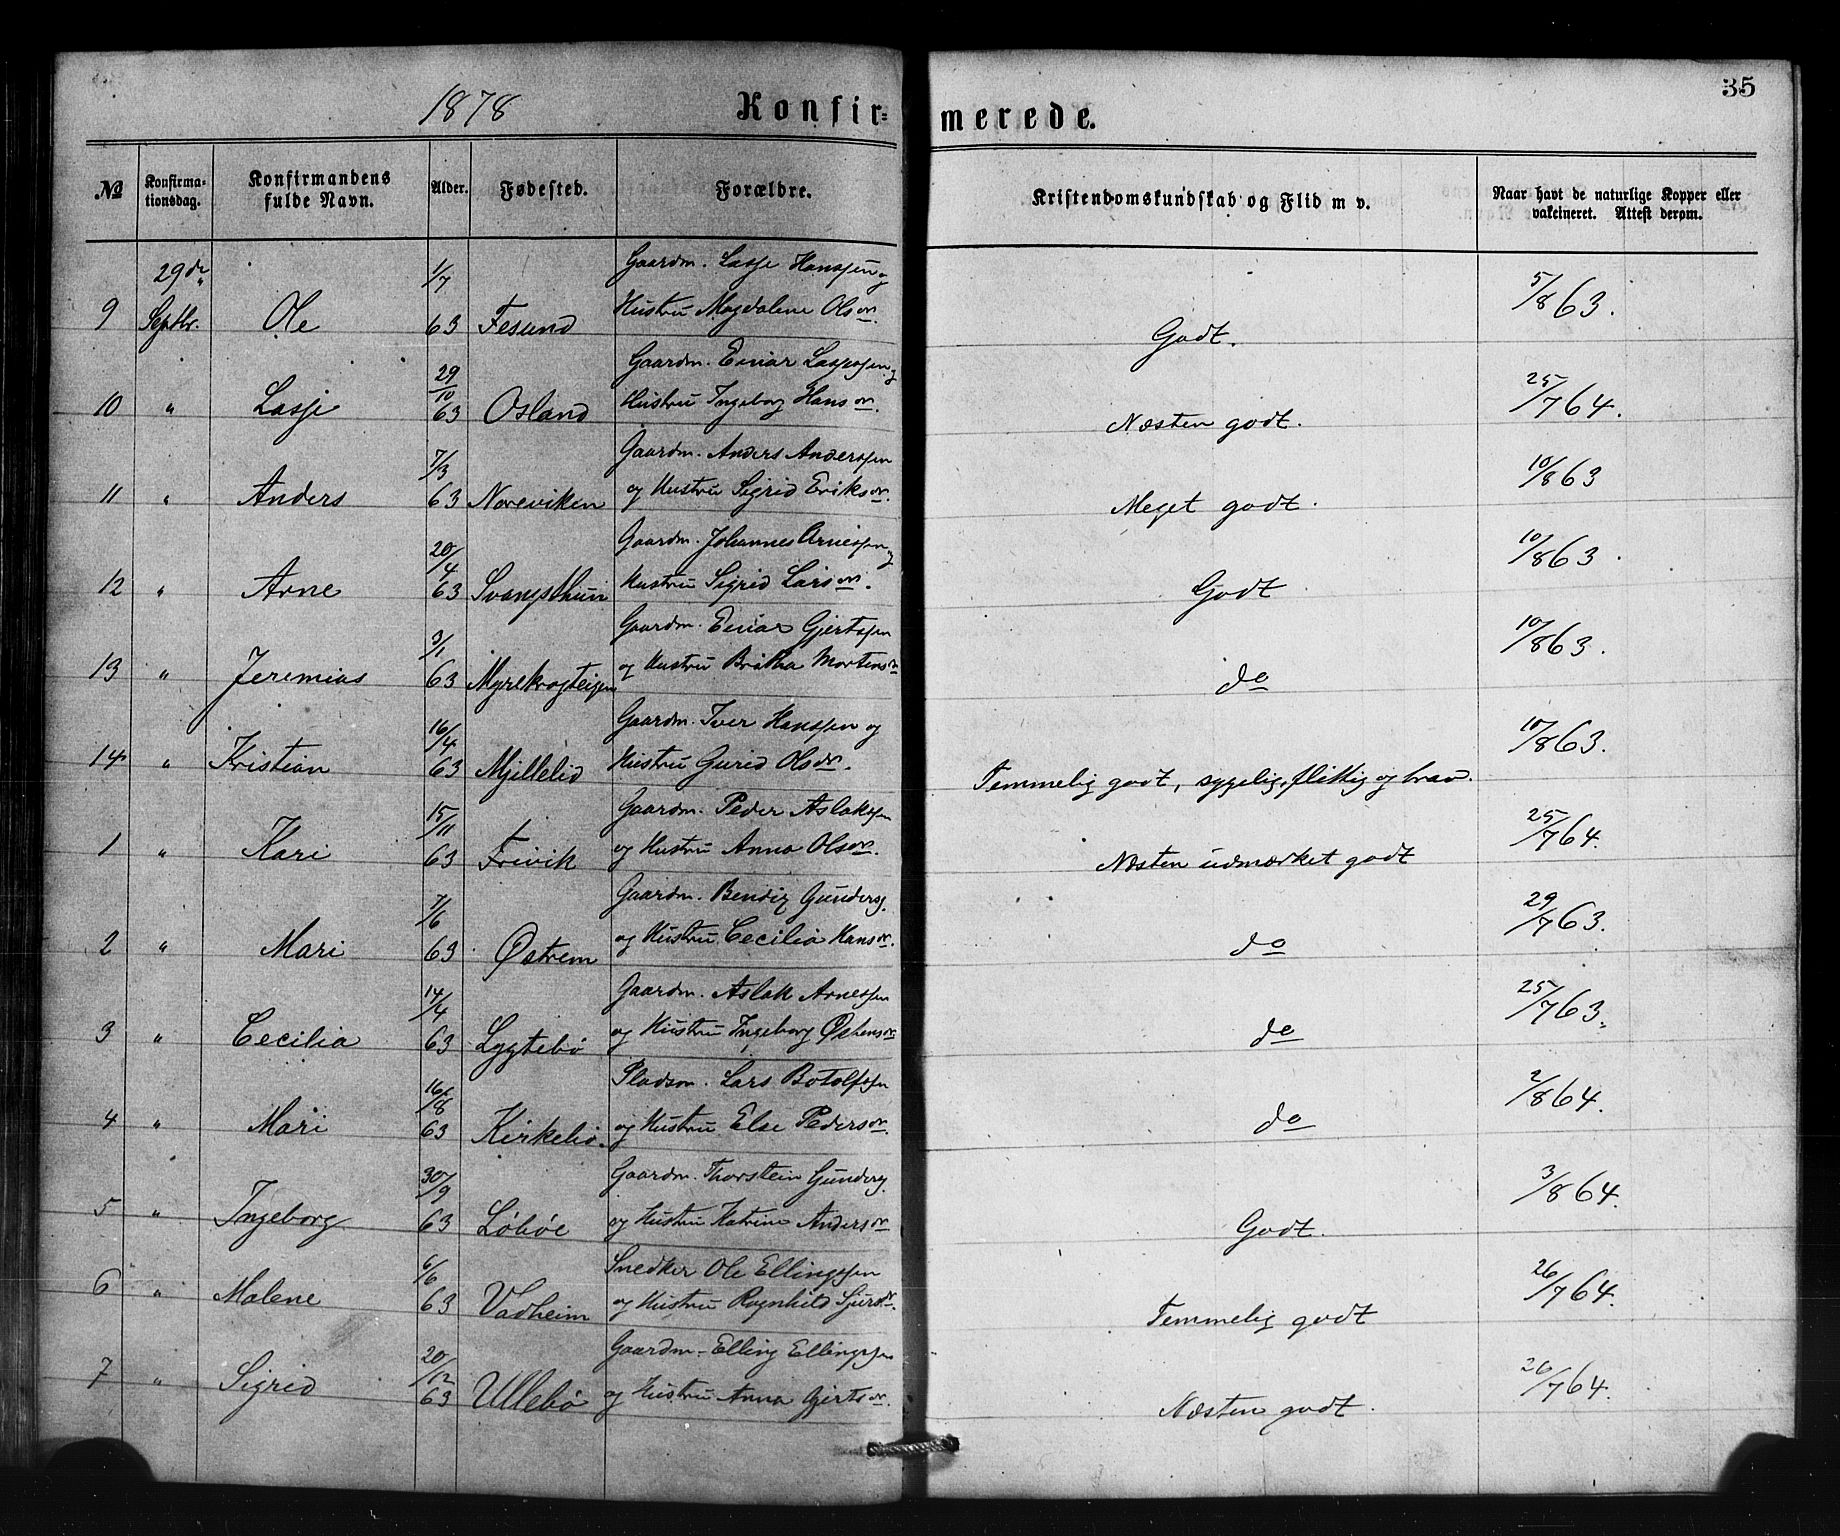 1878 Konfir- merede. 35
№ Konfirma-tionsdag. Konfirmandens fulde Navn. Alder. Fødested. Forældre. Kristendomskundskab og Flid m v. Naar havt de naturlige Kopper eller vakcineret. Attest derom.
29de 1/7 Gaardm. Lasse Hanssen og 5/8 63.
9 Septbr. Ole 63 Fesund Hustru Magdalene Olsdr. Godt.
29/10 Gaardm. Einar Lassesen og 25/7 64.
10 " Lasse 63 Osland Hustru Ingeborg Hansdr. Næsten godt.
7/3 Gaardm. Anders Anderssen 10/8 63
11 " Anders 63 Noreviken og Hustru Sigrid Eriksdr. Meget godt.
20/4 Gaardm. Johannes Arnessen og 10/8 63.
12 " Arne 63 Svangsthun Hustru Sigrid Larsdr. Godt
3/1 Gaardm. Einar Gjertssen 10/8 63.
13 " Jeremias 63 Myrekrogteigen og Hustru Britha Mortensdr do
16/4 Gaardm. Iver Hanssen og 10/8 63.
14 " Kristian 63 Mjillelid Hustru Gurid Olsdr. Temmelig godt, sygelig, flittig og brav.
15/11 Gaardm. Peder Aslakssen 25/7 64.
1 " Kari 63 Frivik og Hustru Anna Olsdr. Næsten udmærket godt
7/6 Gaardm. Bendix Gunders. 29/7 63.
2 " Mari 63 Østrem og Hustru Cecilia Hansdr. do
14/4 Gaardm. Aslak Arnessen 25/7 63.
3 " Cecilia 63 Lygtebö og Hustru Ingeborg Østensdr do
16/8 Pladsm. Lars Botolfssen 2/8 64.
4 " Mari 63 Kirkebö. og Hustru Else Pedersdr. do
30/9 Gaardm. Thorstein Gunders. 3/8 64.
5 " Ingeborg 63 Löböe og Hustru Katrine Andersdr Godt.
6/6 Snedker Ole Ellingssen 26/7 64.
6 " Malene 63 Vadheim og Hustru Ragnhild Sjursdr. Temmelig godt
20/12 Gaardm. Elling Ellingssen 26/7 64.
7 " Sigrid 63 Ullebö og Hustru Anna Gjertsdr. Næsten godt.